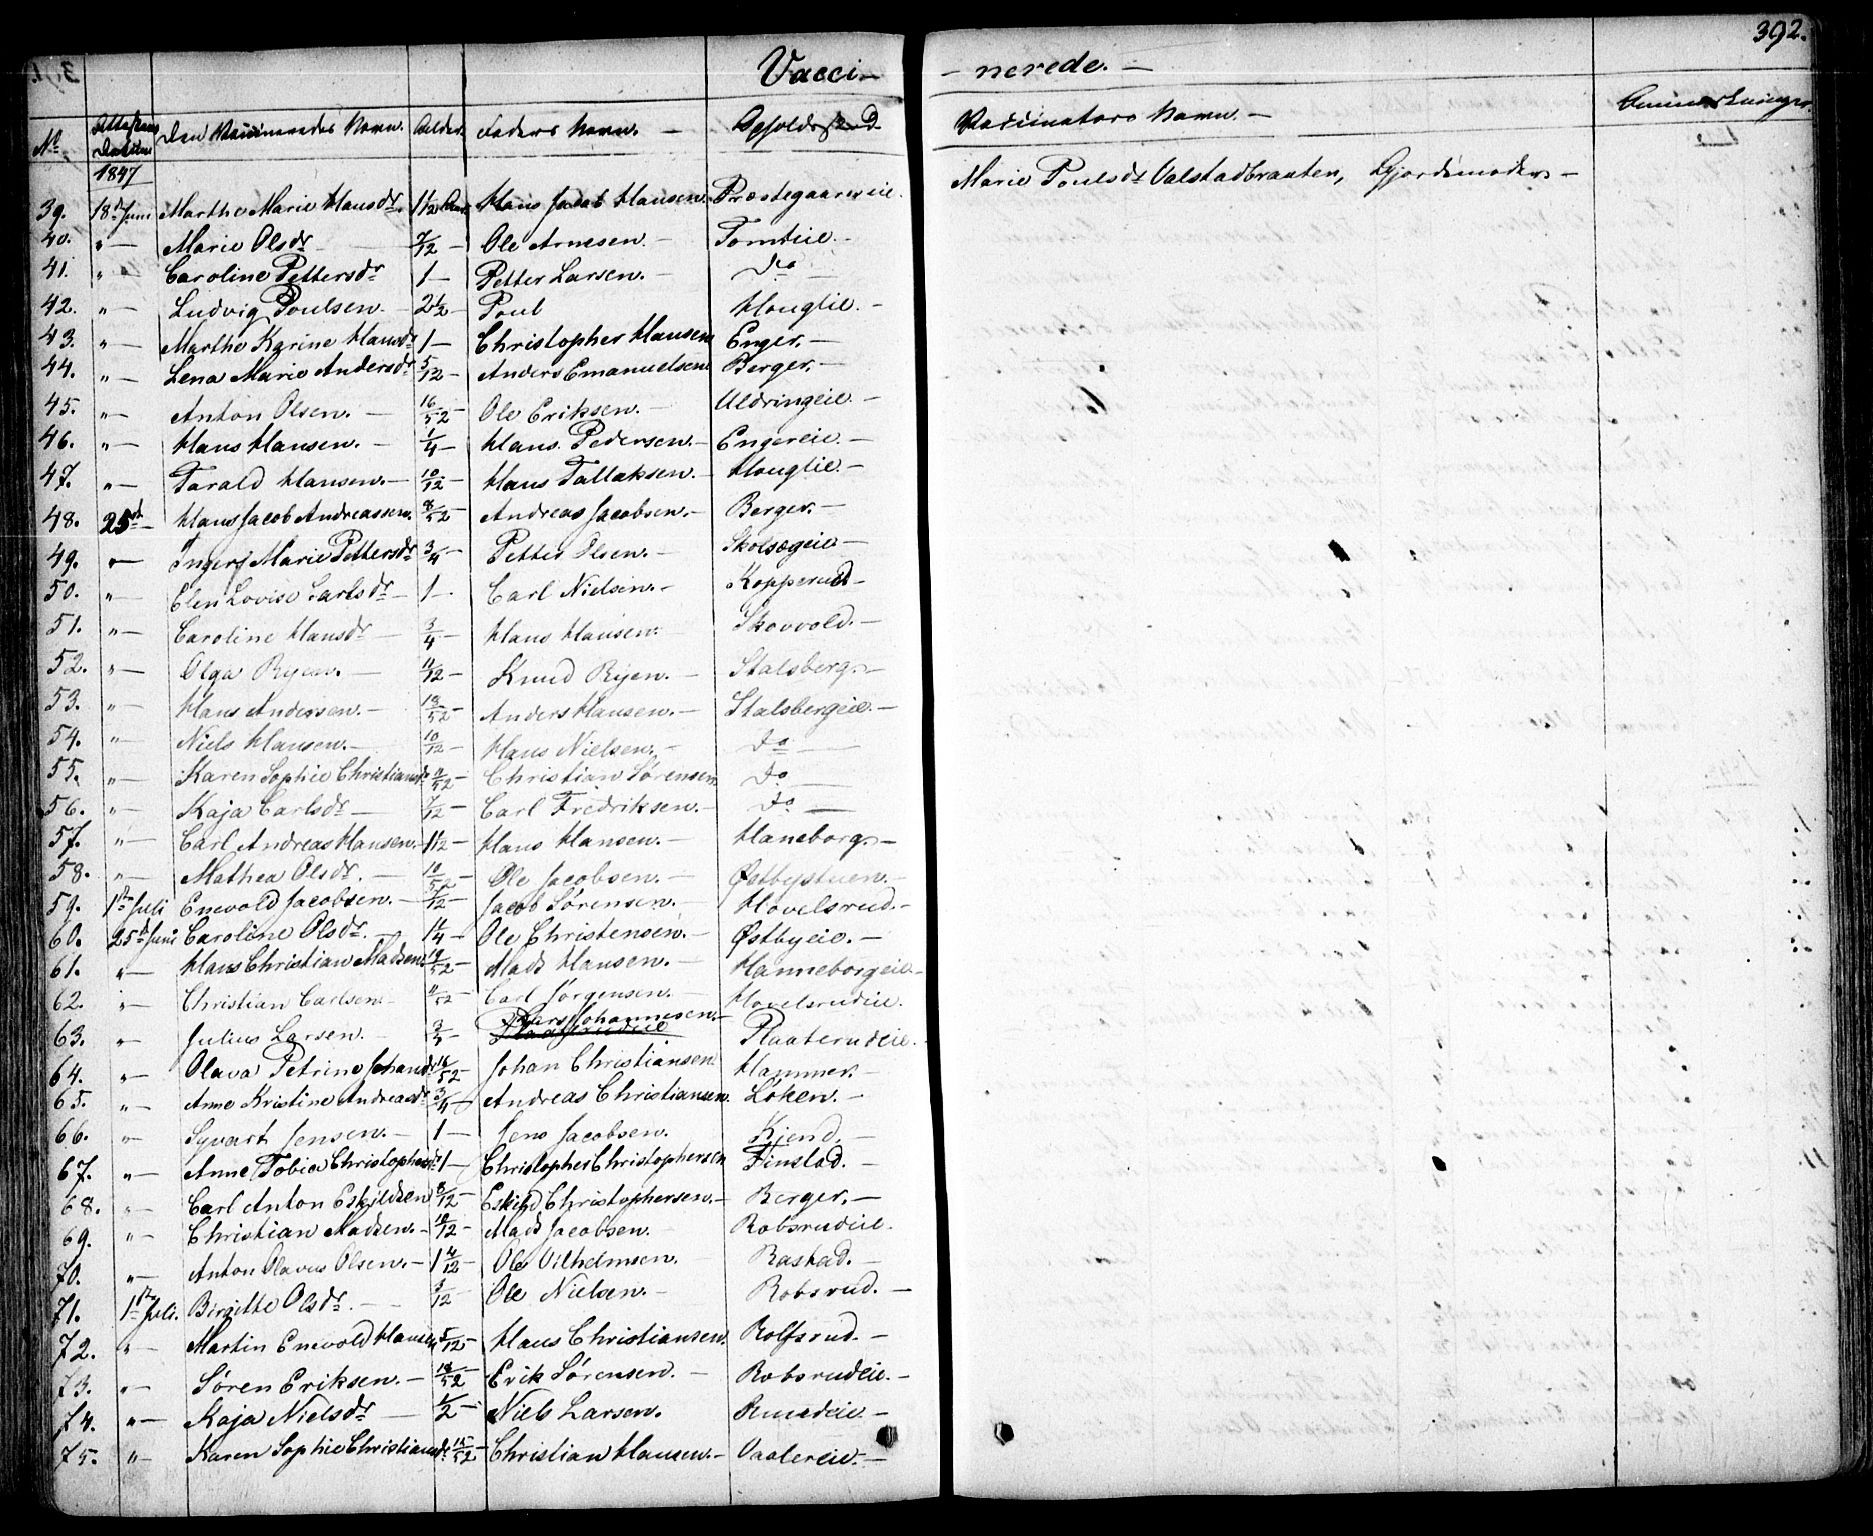 392.
Vacci- -nerede.-
No. Attestens Datum Den Vaccineredes Navn. Alder. Faders Navn. Opholdssted Vaccinators Navn.- Anmærkninger.
1847
39. 18de Juni Marthe Marie Hansdr. 1½ Aar Hans Jacob Hansen. Præstegaardseie. Marie Poulsdr Valstadbraaten, Gjordemoder.-
40. " — Marie Olsdr 7/12 — Ole Arnesen.- Tomteie.-
41. " — Caroline Pettersdr 1 — Petter Larsen.- Do
42. " — Ludvig Poulsen. 2½ — Poul Houglie.-
43. " — Marthe Karine Hansdr 1 — Christopher Hansen Enger.-
44. " — Lena Marie Andersdr 5/12 — Anders Emanuelsen Berger.-
45. " — Anton Olsen.- 16/52 — Ole Eriksen.- Uldringeie.-
46. " — Hans Hansen.- 1/4 — Hans Pedersen.- Engereie.-
47. " — Tarald Hansen.- 10/12 — Hans Tallaksen.- Houglie.-
48. 25de Hans Jacob Andreassen. 8/52 — Andreas Jacobsen.- Berger.-
49. " — Inger Marie Pettersdr 3/4 — Petter Olsen.- Skolsægeie-
50. " — Elen Lovise Carlsdr 1 — Carl Nielsen.- Kopperud-
51. " — Caroline Hansdr 3/4 — Hans Hansen. Skovvold.-
52. " — Olga Ryen.- 11/12 — Knud Ryen.- Stalsberg.-
53. " — Hans Andersen.- 18/52 — Anders Hansen.- Stalsbergeie.-
54. " — Niels Hansen.- 10/12 — Hans Nielsen.- Do
55. " — Karen Sophie Christiansdr 11/52 — Christian Sørensen Do
56. " — Kaja Carlsdr 7/12 — Carl Fredriksen.- Do
57. " — Carl Andreas Hansen.- 1½ — Hans Hansen.- Haneborg.-
58. " — Mathea Olsdr.- 10/52 — Ole Jacobsen.- Østbystuen.-
59. 1ste Juli Enevold Jacobsen.- /12 — Jacob Sørensen.- Hovelsrud.-
60. 25de Juni Caroline Olsdr.- 1¼ — Ole Christensen.- Østbyeie.-
61. " — Hans Christian Madsen /52 — Mads Hansen.- Hanneborgeie.-
62. " — Christian Carlsen 11/52 — Carl Jørgensen.- Hovelsrudeie.
63. " — Julius Larsen.- 3/4 — Lars Johannesen.- Plaaterudeie.
64. " — Olava Petrine Johansdr 16/52 — Johan Christiansen Hammer.-
65. " — Anne Kristine Andreasdr 3/4 — Andreas Christiansen. Løken.-
66. " — Syvart Jensen.- 1 — Jens Jacobsen. Kjend.-
67. " — Anne Tobia Christophersdr 1 — Christopher Christophersen Finstad.-
68. " — Carl Anton Eskildsen 8/12 — Eskild Christophersen.- Berger.-
69. " — Christian Madsen.- 10/12 — Mads Jacobsen. Robsrudeie.
70. " — Anton Olavus Olsen.- 1 4/12 — Ole Vilhelmsen. Rastad.-
71. 1ste Juli. Birgitte Olsdr.- 3/12 — Ole Nielsen.- Robsrud.-
72. " — Martin Enevold Hansen 5/12 — Hans Christiansen. Rolfsrud.-
73. " — Søren Eriksen.- 18/52 — Erik Sørensen.- Robsrudeie.-
74. " — Kaja Nielsdr 1/2 — Niels Larsen. Rmedeie.-
75. " — Karen Sophie Christiansdr 15/52 — Christian Hansen.- Vaalereie.-